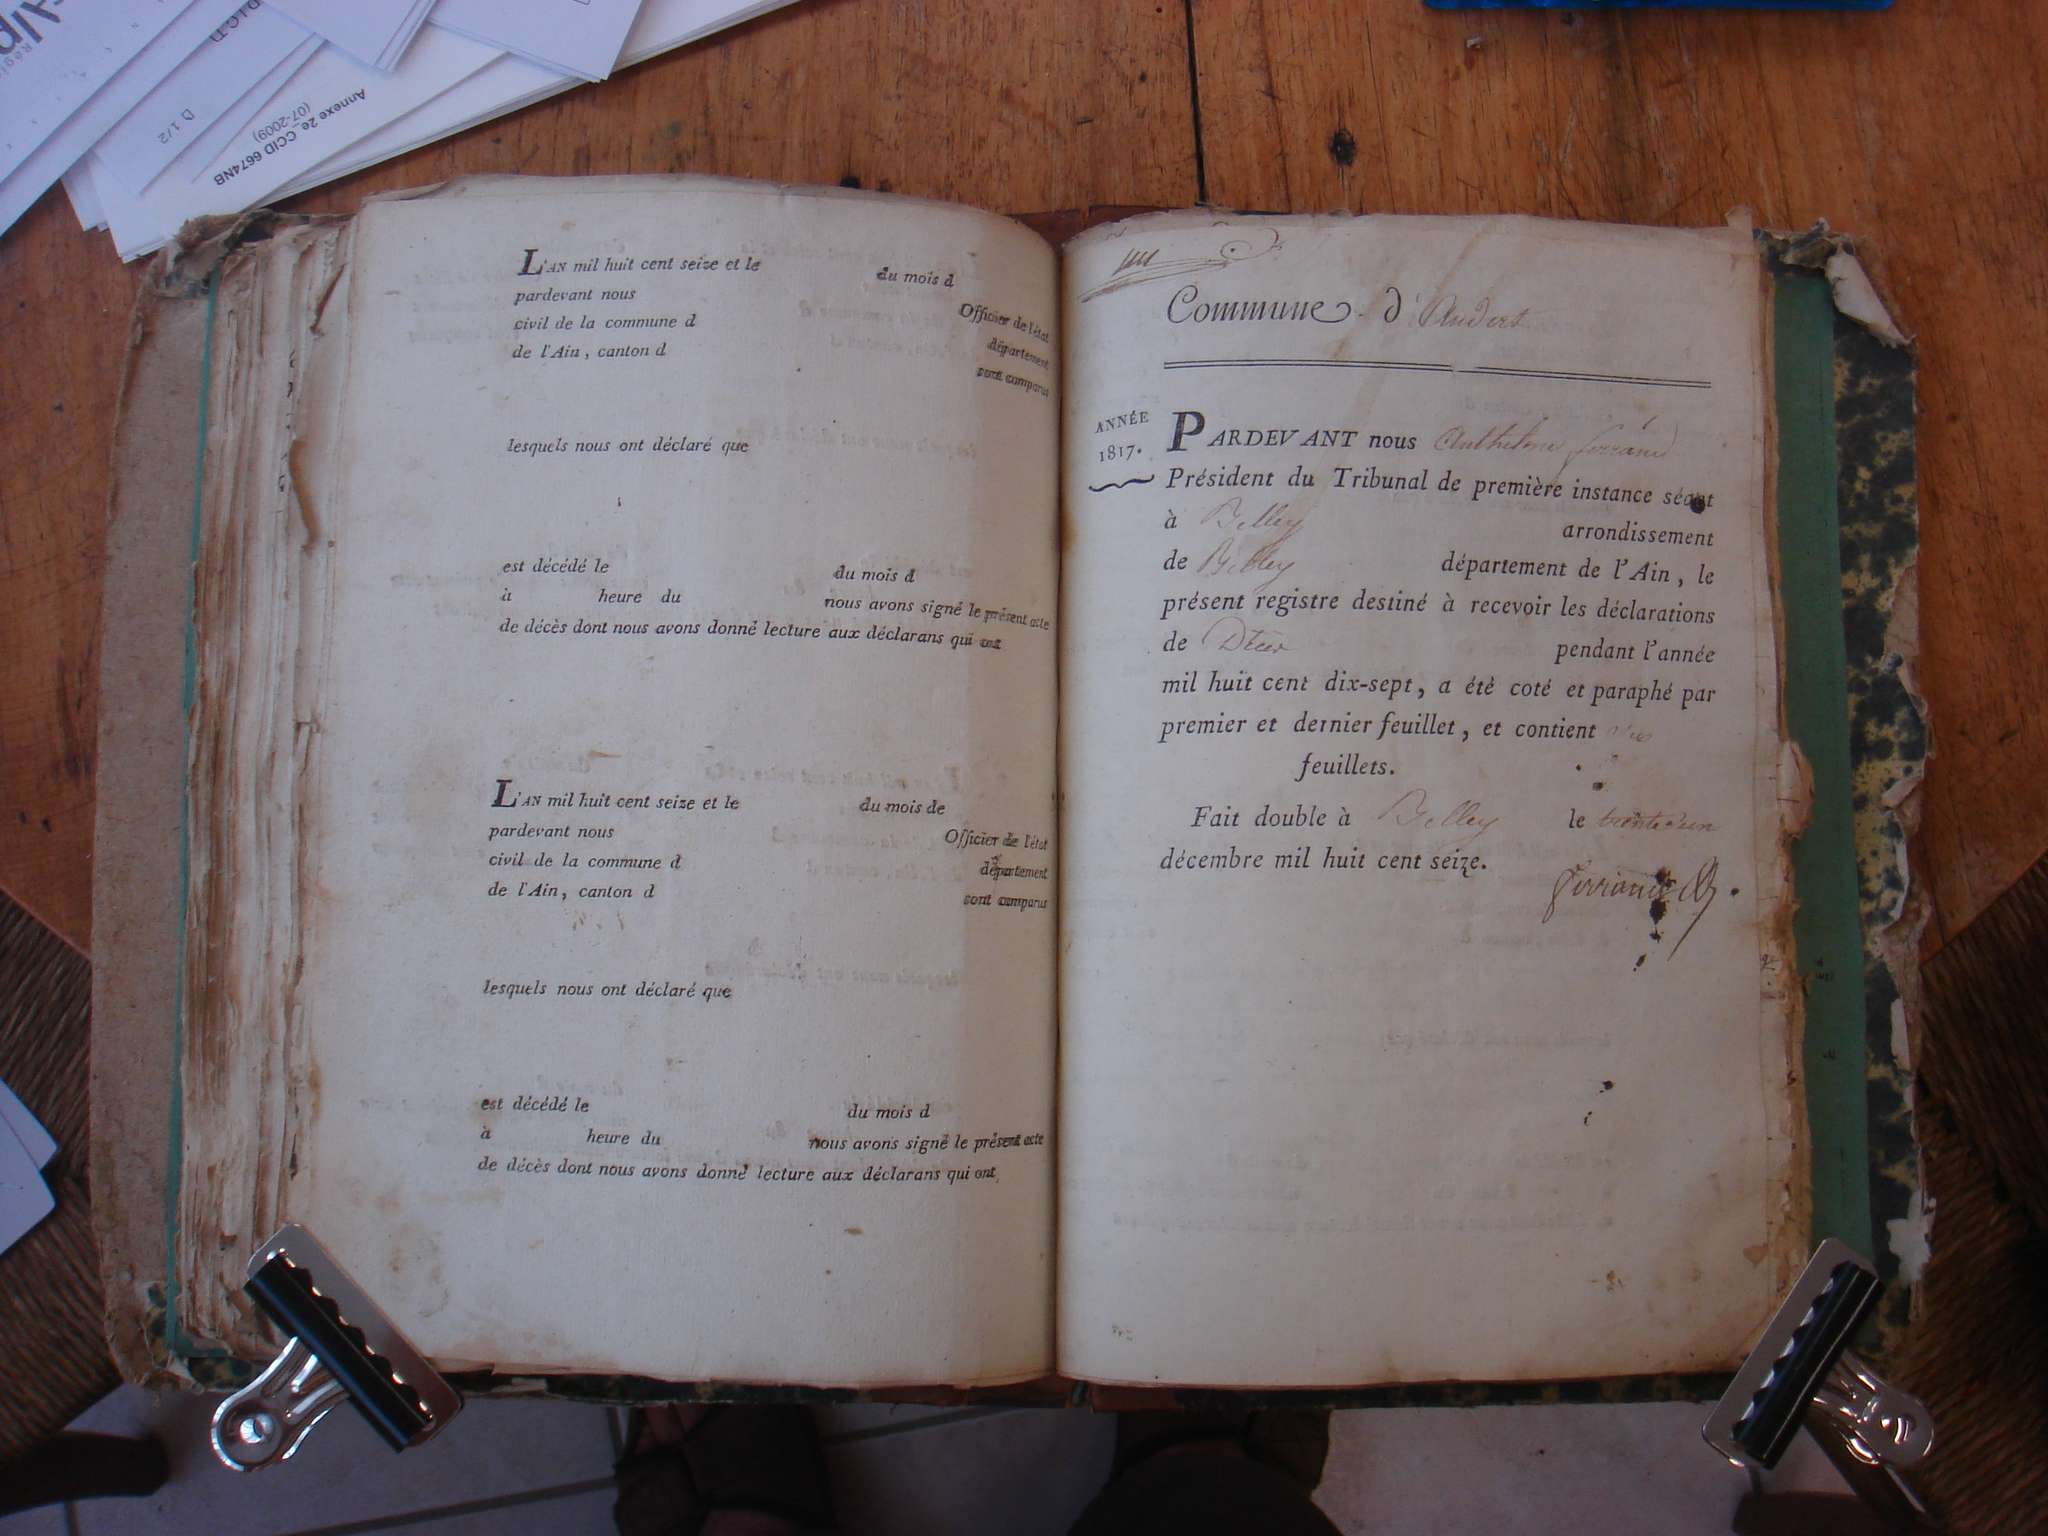 D 1/2
Annexe 2e_CCID 6674NB
(07-2009)
L'AN mil huit cent seize et le du mois d
pardevant nous Officier de l'état
civil de la commune d département
de l'Ain, canton d sont comparus
lesquels nous ont déclaré que
est décédé le du mois d
à heure du nous avons signé le présent acte
de décès dont nous avons donné lecture aux déclarans qui ont
L'AN mil huit cent seize et le du mois de
pardevant nous Officier de l'état
civil de la commune d département
de l'Ain, canton d sont comparus
lesquels nous ont déclaré que
est décédé le du mois d
à heure du nous avons signé le présent acte
de décès dont nous avons donné lecture aux déclarans qui ont
Commune d'Andert
ANNÉE
1817.
PARDEVANT nous Anthelme ferrand
Président du Tribunal de première instance séant
à Belley arrondissement
de Belley département de l'Ain, le
présent registre destiné à recevoir les déclarations
de Décès pendant l'année
mil huit cent dix-sept, a été coté et paraphé par
premier et dernier feuillet, et contient
feuillets.
Fait double à Belley le trente un
décembre mil huit cent seize.
ferrand